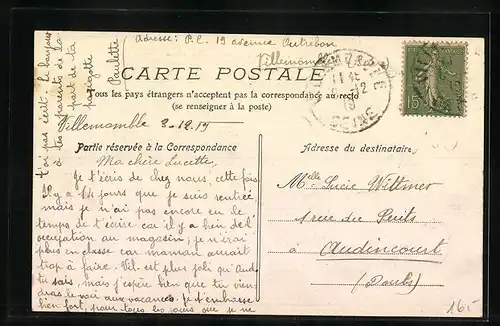 Adresse: P.C. 19 avenue Outrebon
Villemomble
CARTE POSTALE
Tous les pays étrangers n'acceptent pas la correspondance au recto
(se renseigner à la poste)
Villemomble 3-12-19
Partie réservée à la Correspondance
Ma chère Lucette,
Je t'écris de chez nous, cette fois.
Il y a 14 jours que je suis rentrée,
mais je n'ai pas encore eu le
temps de t'écrire car il y a bien de l'
occupation au magasin; je n'irai
plus en classe car maman aurait
trop à faire. Vil. est plus joli qu'Aud.
tu sais, mais j'espère bien que tu vien-
dras le voir aux vacances. Je t'embrasse
bien fort, pour tous les jours que je ne
t'ai pas écrit. Le bonjour
à tes parents de la
part de la
Paulette
Adresse du destinataire
Mlle Lucie Wittmer
1 rue du Puits
à Audincourt
(Doubs)
15
165.-